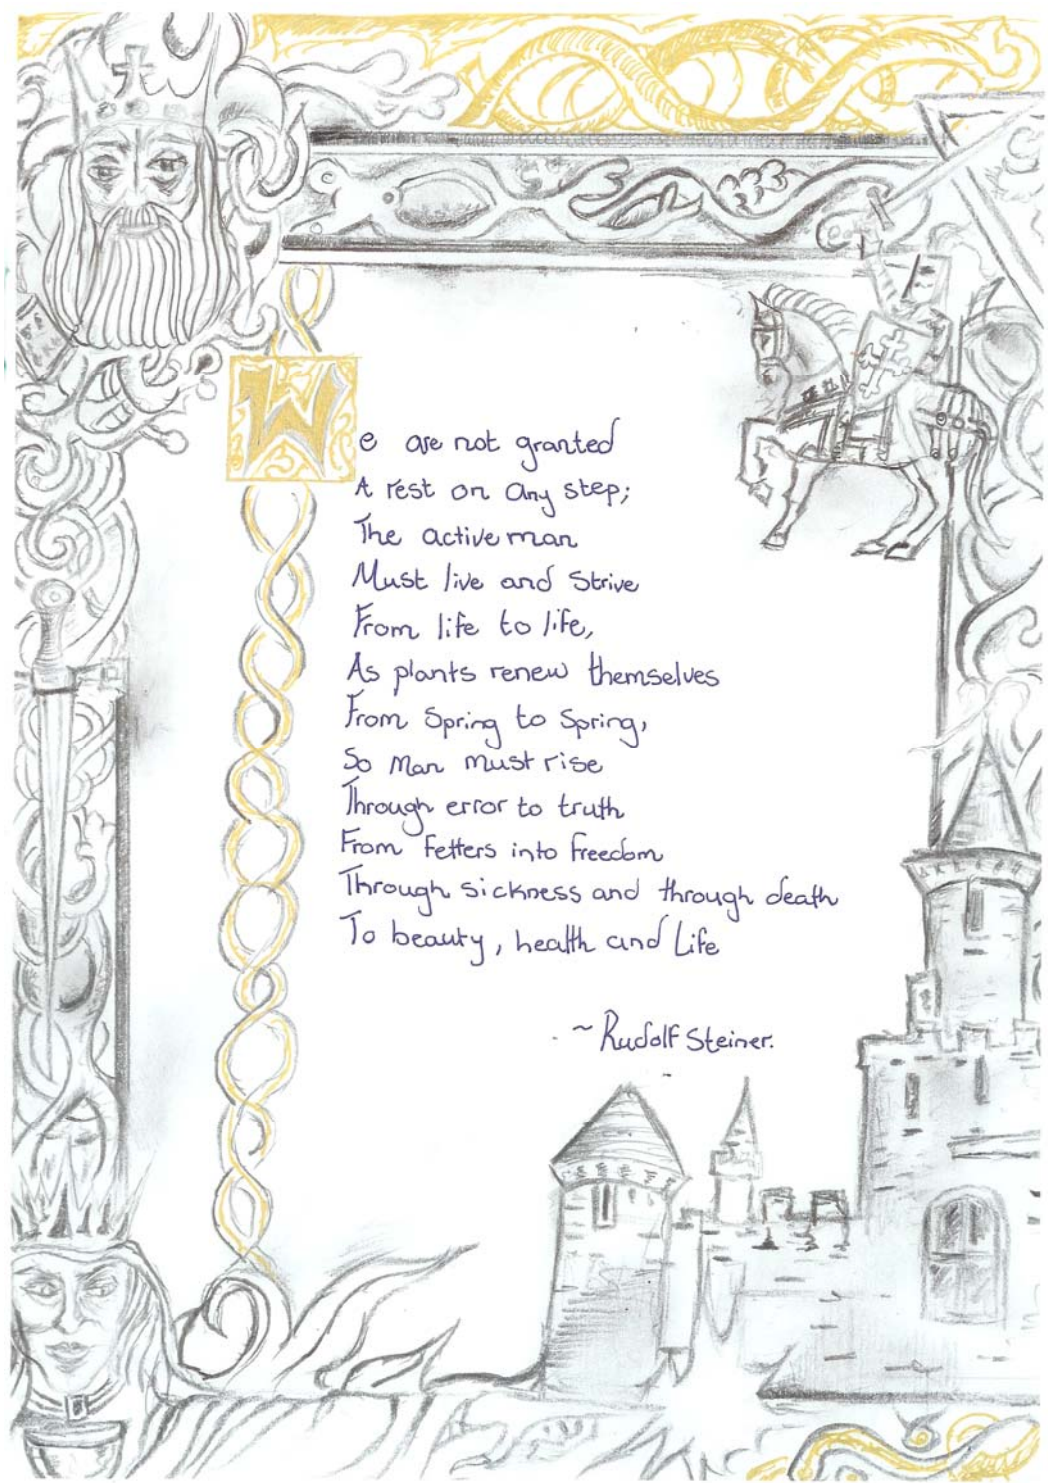 We are not granted
A rest on any step;
The active man
Must live and strive
From life to life,
As plants renew themselves
From Spring to Spring,
So Man must rise
Through error to truth
From fetters into freedom
Through sickness and through death
To beauty, health and Life
~ Rudolf Steiner.